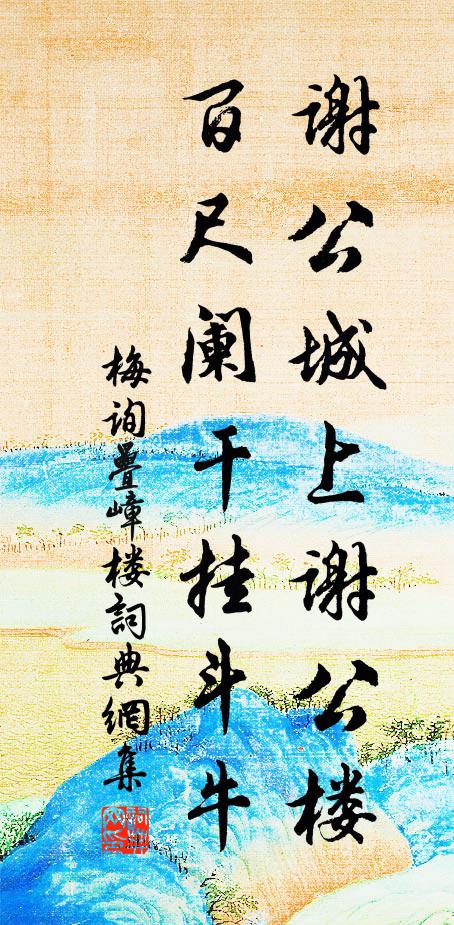 谢公城上谢公楼
百尺阑干挂斗牛
梅询叠嶂楼詞典網集